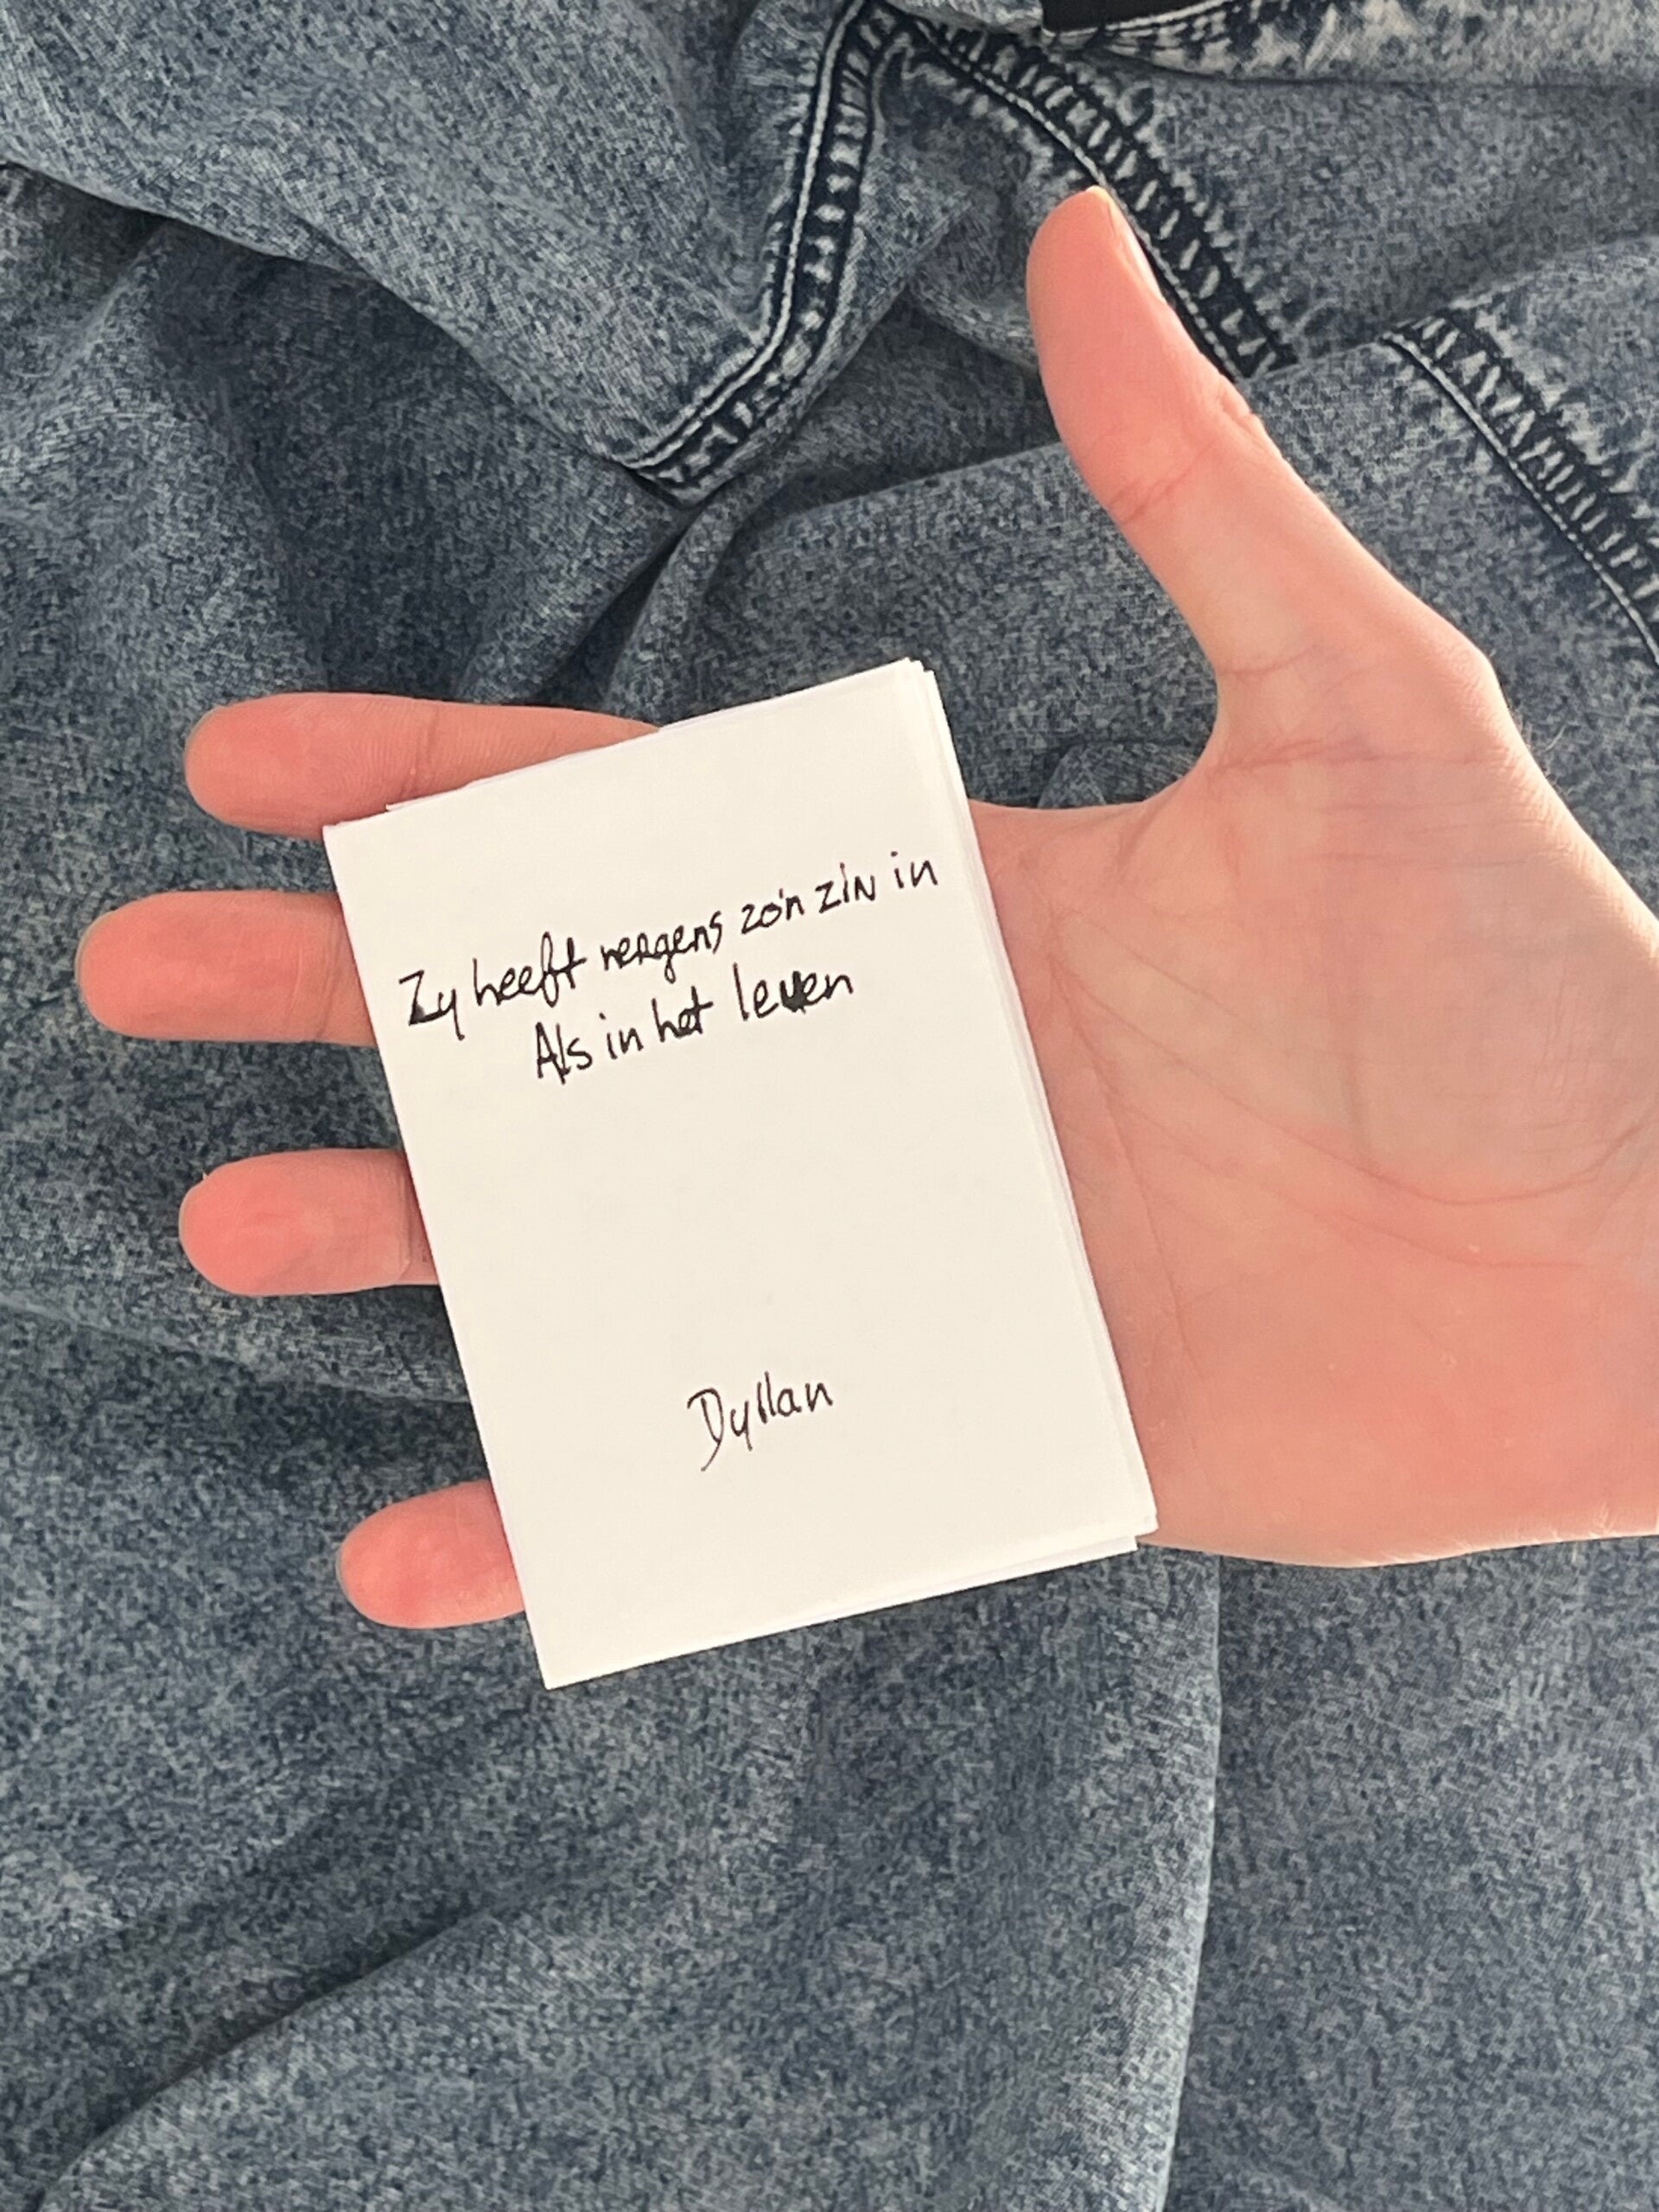 Zy heeft nergens zo'n zin in
Als in het leven
Dyllan